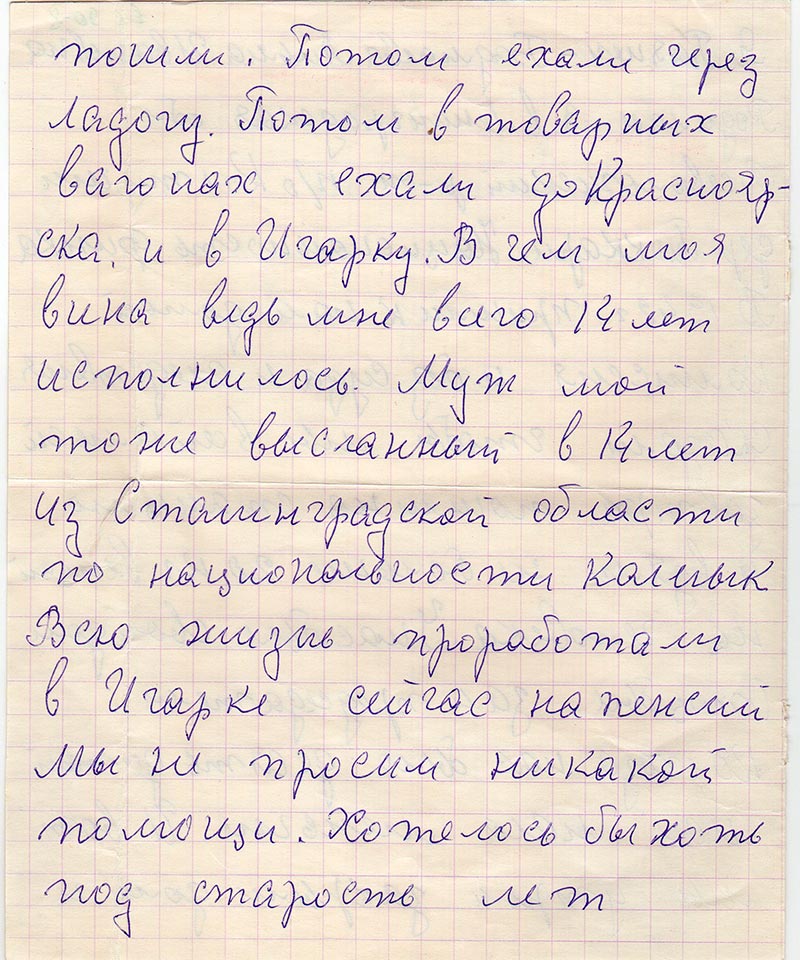 пошли. Потом ехали через
ладогу. Потом в товарных
вагонах ехали до Краснояр-
ска, и в Игарку. В чем моя
вина ведь мне всего 14 лет
исполнилось. Муж мой
тоже высланный в 14 лет
из Сталинградской области
по национальности Калмык
Всю жизнь проработали
в Игарке сейчас на пенсий
Мы не просим никакой
помощи. Хотелось бы хоть
под старость лет